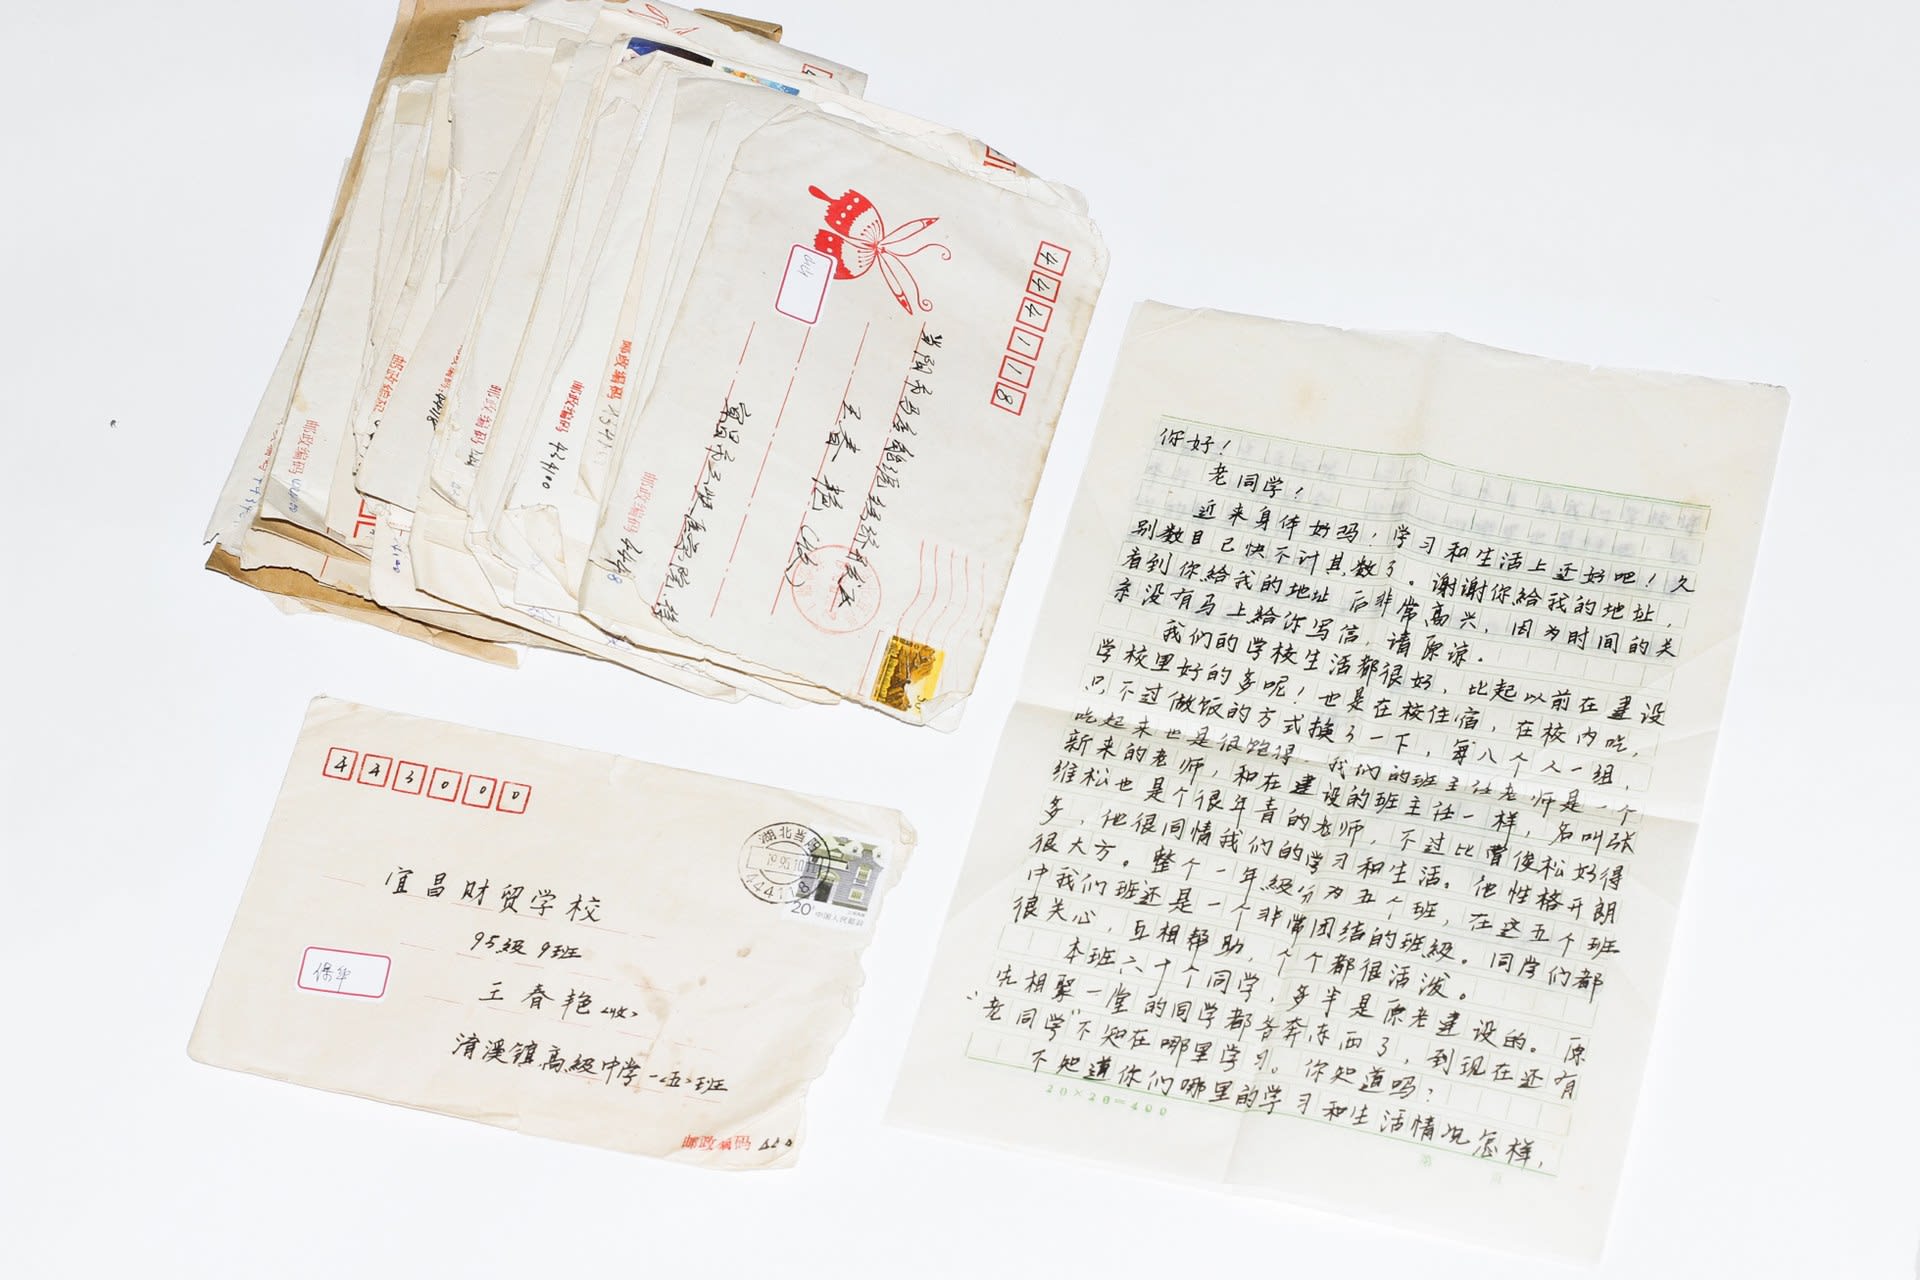 444118
王春艳(收)
邮政编码
444118
邮政编码
434100
邮政编码
邮政编码
443000
湖北当阳
1995.10.11
444118
20
中国人民邮政
宜昌财贸学校
95級9班
王春艳<收>
保华
淯溪镇高級中学一<五>班
邮政编码
你好!
老同学!
近来身体好吗,学习和生活上还好吧!久
别数日已快不计其数了。谢谢你给我的地址,
看到你给我的地址后非常高兴,因为时间的关
系没有马上给你写信,请原谅。
我们的学校生活都很好,比起以前在建设
学校里好的多呢!也是在校住宿,在校内吃,
只不过做饭的方式换了一下,每八个人一组,
吃起来也是很饱得。我们的班主任老师是一个
新来的老师,和在建设的班主任一样,名叫张
维松也是个很年青的老师,不过比曹俊松好得
多,他很同情我们的学习和生活。他性格开朗
很大方。整个一年級分为五个班,在这五个班
中我们班还是一个非常团结的班級。同学们都
很关心,互相帮助,个个都很活泼。
本班六十个同学,多半是原老建设的。原
先相聚一堂的同学都各奔东西了,到现在还有
“老同学”不知在哪里学习。你知道吗?
不知道你们哪里的学习和生活情况怎样,
20×20=400